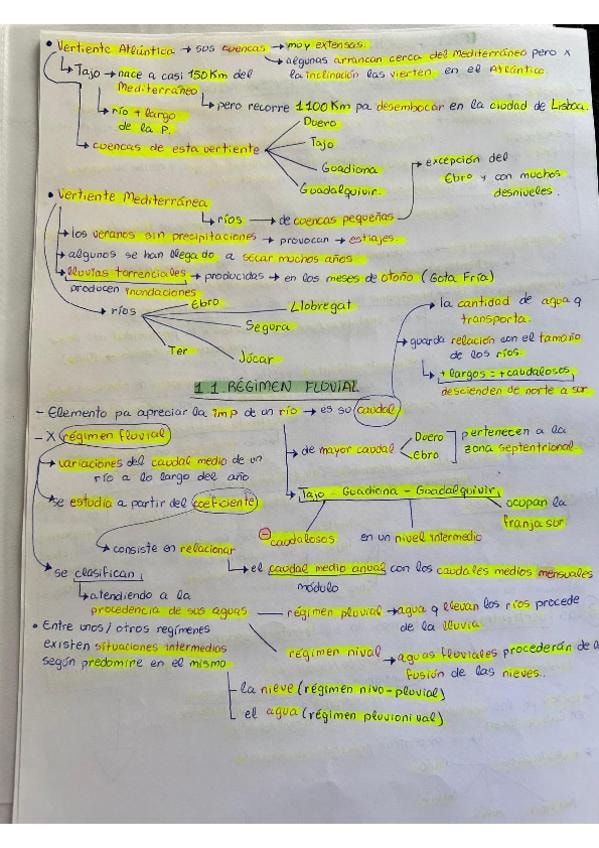 • Vertiente Atlántica → sus cuencas → muy extensas.
→ algunas arrancan cerca del Mediterráneo pero x
la inclinación las vierten en el Atlántico.
→ Tajo → nace a casi 150Km del
Mediterráneo
→ río + largo
de la P.
→ pero recorre 1100Km pa desembocar en la ciudad de Lisboa.
→ cuencas de esta vertiente
Duero
Tajo
Guadiana
Guadalquivir.
• Vertiente Mediterránea
→ ríos → de cuencas pequeñas
→ excepción del
Ebro y con muchos
desniveles.
→ los veranos sin precipitaciones → provocan → estiajes.
→ algunos se han llegado a secar muchos años.
→ lluvias torrenciales → producidas → en los meses de otoño (Gota Fría)
producen inundaciones
→ ríos
Ebro
Llobregat
Segura
Júcar
Ter
1.1. RÉGIMEN FLUVIAL
- Elemento pa apreciar la imp de un río → es su caudal
→ la cantidad de agua q
transporta.
→ guarda relación con el tamaño
de los ríos.
→ + largos = + caudalosos,
descienden de norte a sur.
→ de mayor caudal
Duero
Ebro
pertenecen a la
zona septentrional.
→ Tajo - Guadiana - Guadalquivir,
⊖ caudalosos
en un nivel intermedio
ocupan la
franja sur.
- X régimen fluvial
→ variaciones del caudal medio de un
río a lo largo del año
→ se estudia a partir del coeficiente
→ consiste en relacionar
→ el caudal medio anual con los caudales medios mensuales
módulo
→ se clasifican,
→ atendiendo a la
procedencia de sus aguas
régimen pluvial → agua q llevan los ríos procede
de la lluvia.
régimen nival → aguas fluviales procederán de
fusión de las nieves.
• Entre unos/otros regímenes
existen situaciones intermedios
según predomine en el mismo
- la nieve (régimen nivo-pluvial)
- el agua (régimen pluvionival)